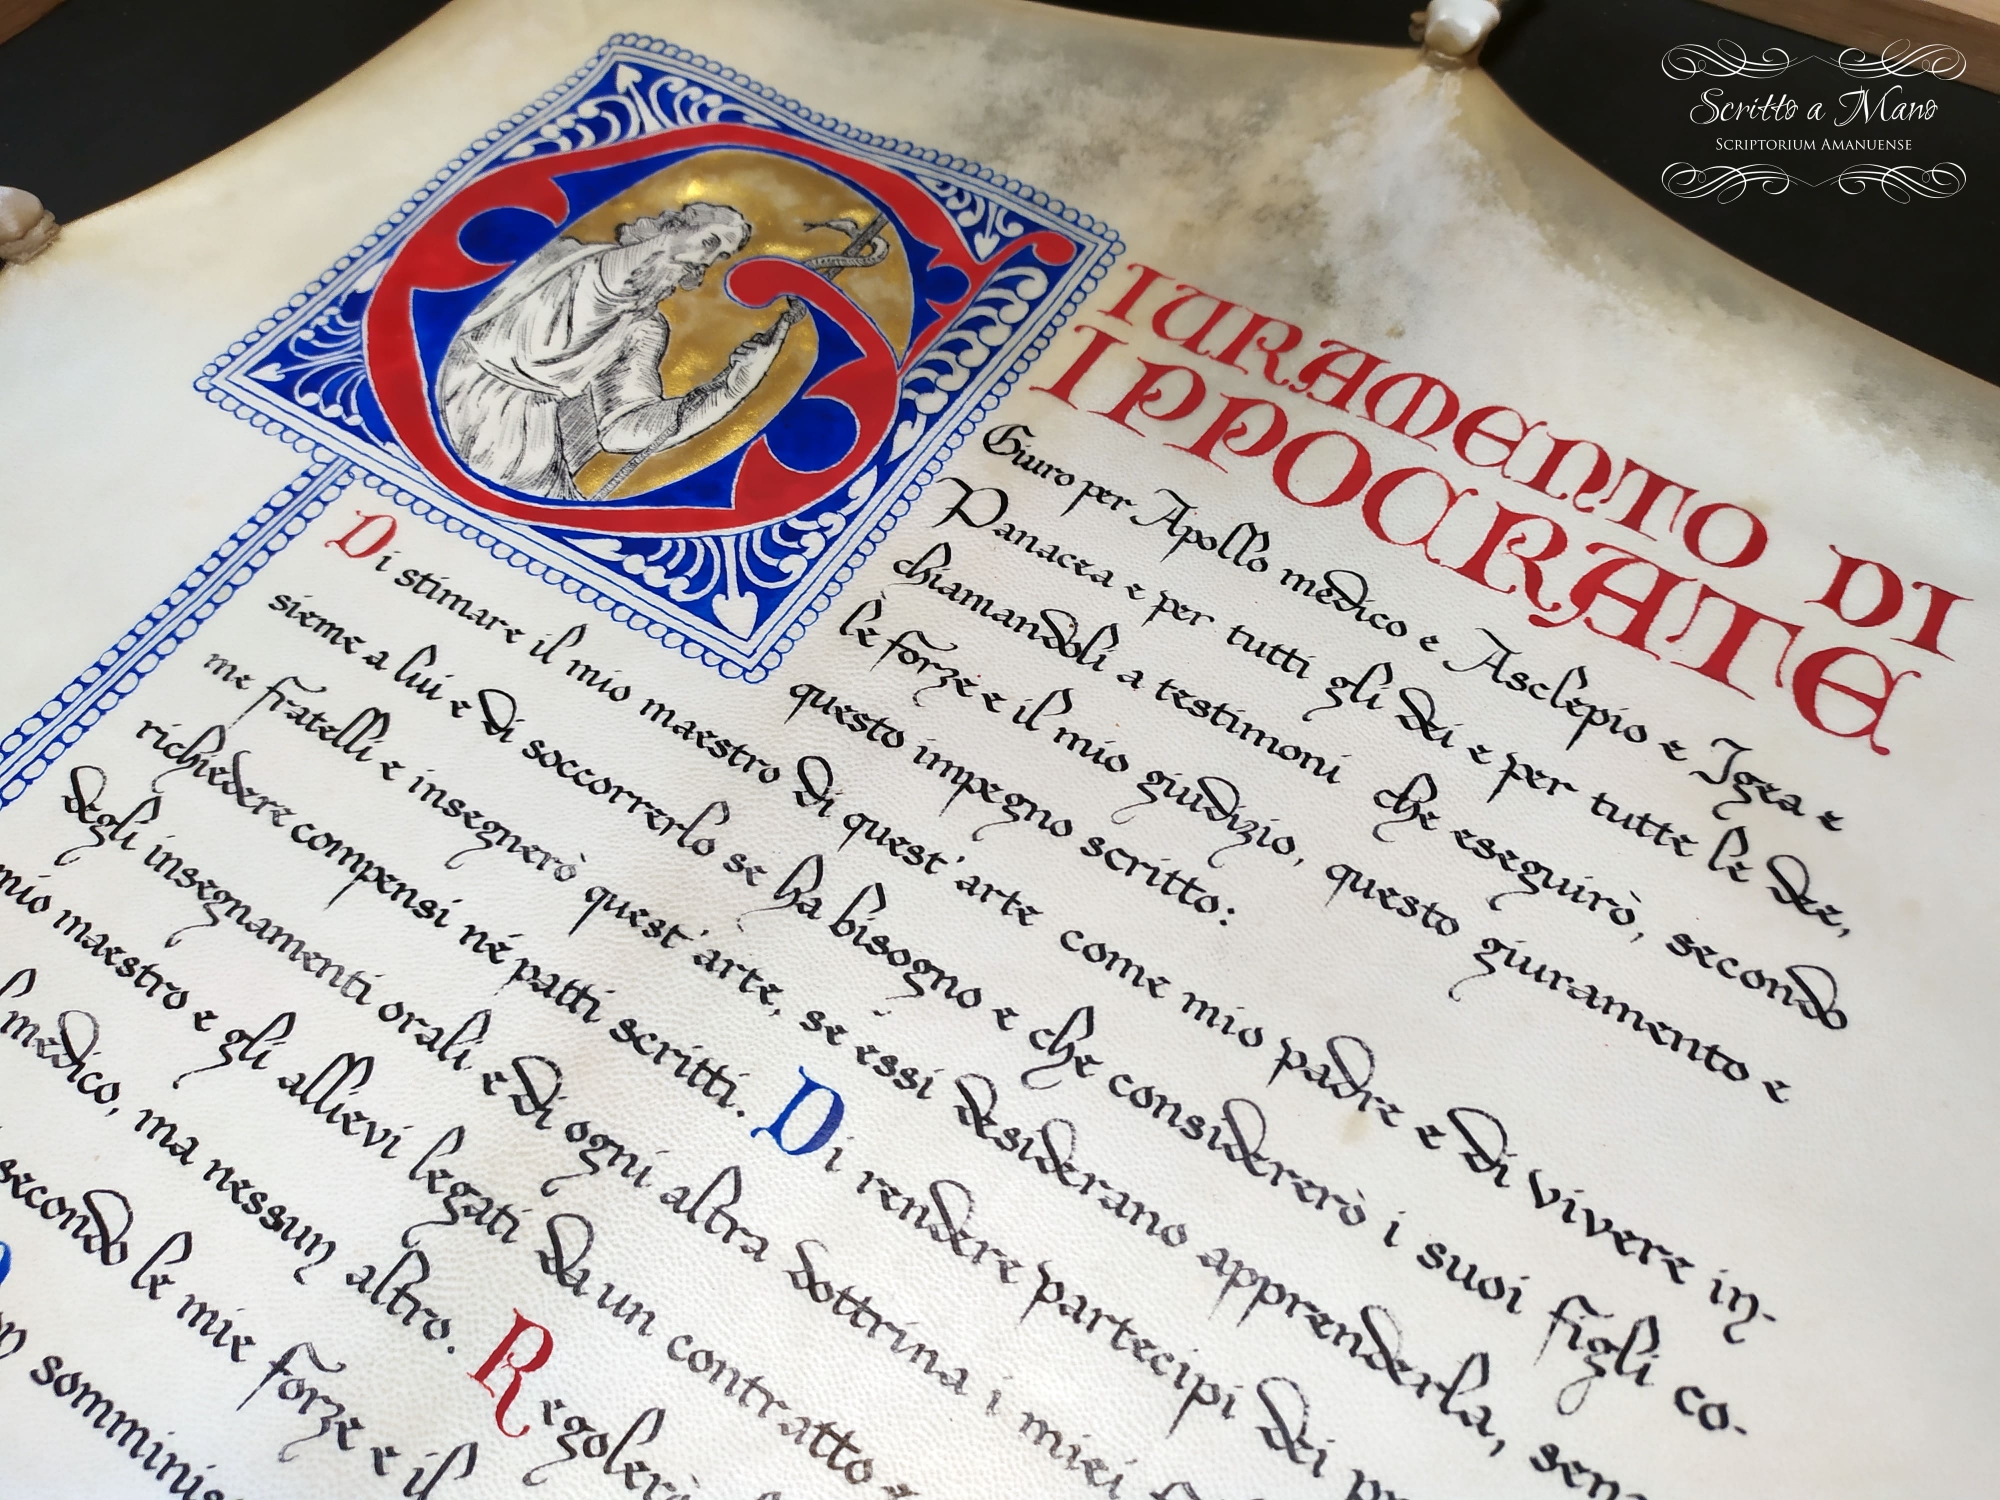 Scritto a Mano
SCRIPTORIUM AMANUENSE
GIURAMENTO DI
IPPOCRATE
Giuro per Apollo medico e Asclepio e Igea e
Panacea e per tutti gli dei e per tutte le dee,
chiamandoli a testimoni che eseguirò, secondo
le forze e il mio giudizio, questo giuramento e
questo impegno scritto:
Di stimare il mio maestro di quest'arte come mio padre e di vivere in-
sieme a lui e di soccorrerlo se ha bisogno e che considererò i suoi figli co-
me fratelli e insegnerò quest'arte, se essi desiderano apprenderla, sen
richiedere compensi né patti scritti. Di rendere partecipi dei
degli insegnamenti orali e di ogni altra dottrina i miei
mio maestro e gli allievi legati da un contratto
medico, ma nessun altro. Regolerò
secondo le mie forze e il